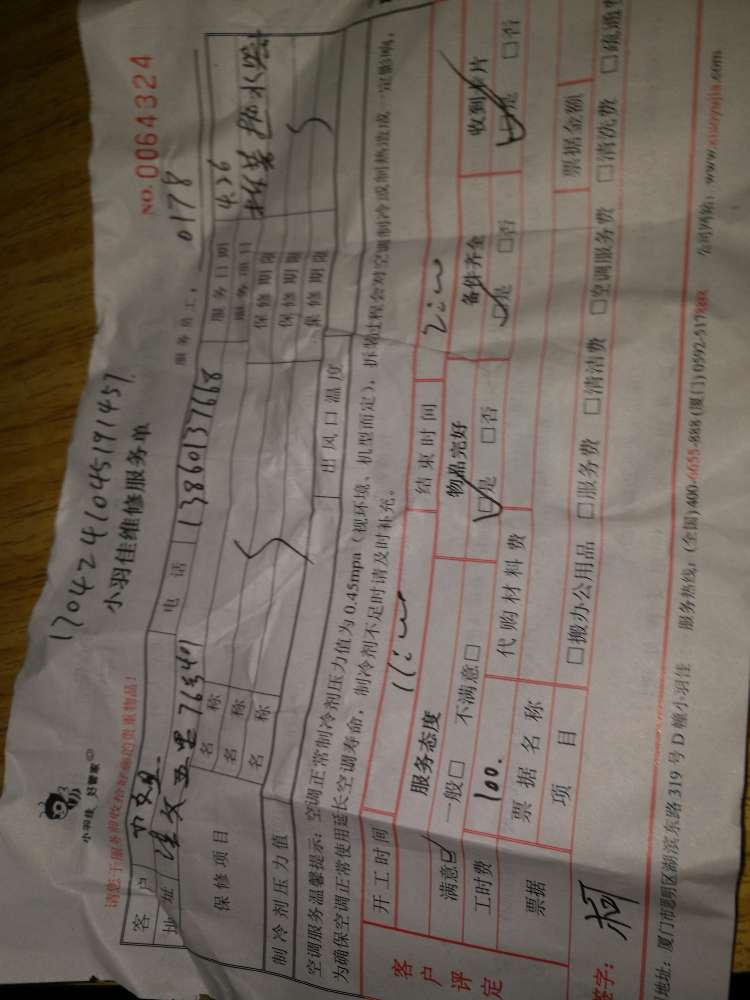 1704241045191457
小羽佳 好管家
小羽佳维修服务单
NO.0064324
请您于服务前收拾好您的贵重物品!
服务员工: 0178
客户
电话 13860137668
服务日期 4.26
地址 莲文五里76号401
服务项目 拆装热水器
保修项目
名称
保修期限
名称
保修期限
名称
保修期限
制冷剂压力值
出风口温度
空调服务温馨提示: 空调正常制冷剂压力值为0.45mpa(视环境、机型而定), 拆装过程会对空调制冷或制热造成一定影响,
为确保空调正常使用延长空调寿命, 制冷剂不足时请及时补充。
客户评定
开工时间
结束时间
服务态度
物品完好
备件齐全
收到卡片
满意☑ 一般□ 不满意□
☑是 □否
☑是 □否
☑是 □否
工时费 100.
代购材料费
票据
票据名称
票据金额
项目
□搬办公用品 □服务费 □清洁费 □空调服务费 □清洗费 □疏通费
签字: 柯
地址: 厦门市思明区湖滨东路319号D幢小羽佳
服务热线: (全国)400-6655-888 (厦门)0592-517
公司网站: www.xiaoyujia.com